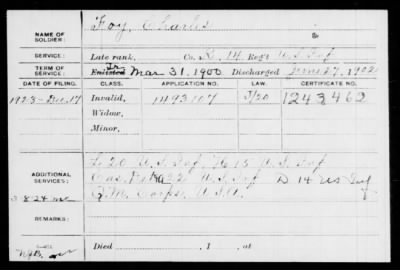 NAME OF SOLDIER: Foy, Charles
SERVICE: Late rank, Co. K, 14 Reg't U.S. Inf
TERM OF SERVICE: Enlisted Mar 31, 1900 Discharged June 27, 1902
DATE OF FILING. CLASS. APPLICATION NO. LAW. CERTIFICATE NO.
1923-Dec. 17 Invalid, 1493107 1243462
Widow,
Minor,
ADDITIONAL SERVICES: L 20 U.S. Inf, 15 U.S. Inf
Cas. 22 U.S. Inf D 14 US Inf
Q.M. Corps, U.S.A.
REMARKS:
Died , 1 , at